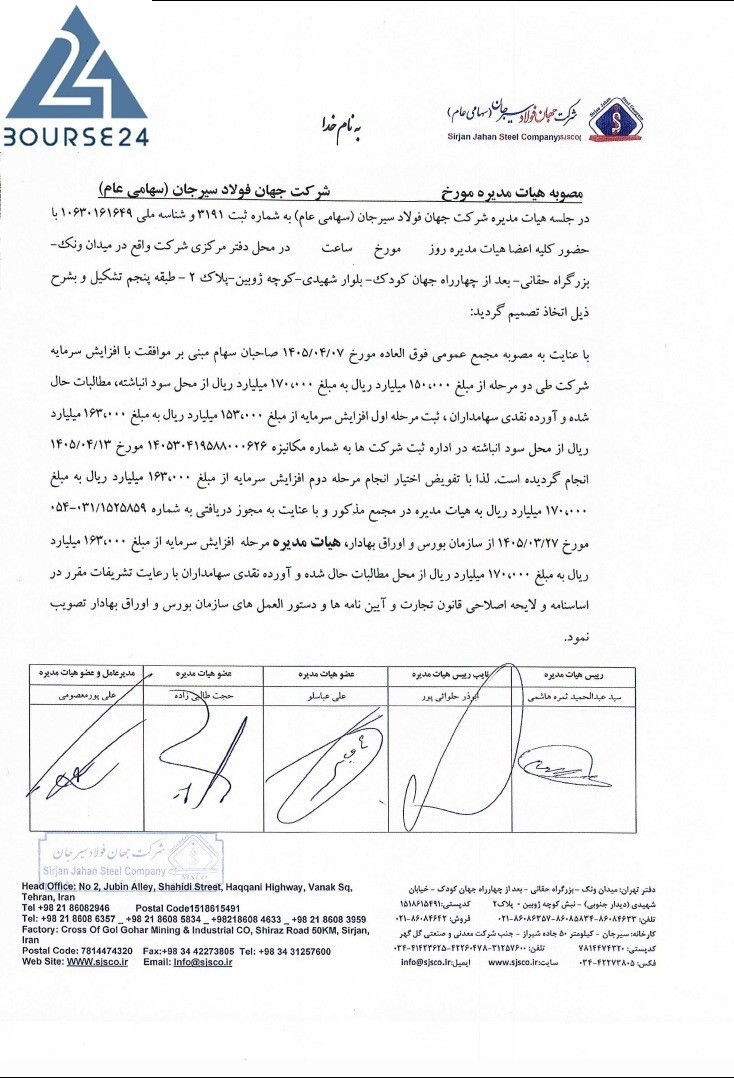 BOURSE24
شرکت جهان فولاد سیرجان (سهامی عام)
Sirjan Jahan Steel Company(SJSCO)
Sirjan Jahan Steel Company
به نام خدا
مصوبه هیات مدیره مورخ شرکت جهان فولاد سیرجان (سهامی عام)
در جلسه هیات مدیره شرکت جهان فولاد سیرجان (سهامی عام) به شماره ثبت ۳۱۹۱ و شناسه ملی ۱۰۶۳۰۱۶۱۶۴۹ با
حضور کلیه اعضا هیات مدیره روز مورخ ساعت در محل دفتر مرکزی شرکت واقع در میدان ونک-
بزرگراه حقانی- بعد از چهارراه جهان کودک- بلوار شهیدی-کوچه ژوبین-پلاک ۲ - طبقه پنجم تشکیل و بشرح
ذیل اتخاذ تصمیم گردید:
با عنایت به مصوبه مجمع عمومی فوق العاده مورخ ۱۴۰۵/۰۴/۰۷ صاحبان سهام مبنی بر موافقت با افزایش سرمایه
شرکت طی دو مرحله از مبلغ ۱۵۰،۰۰۰ میلیارد ریال به مبلغ ۱۷۰،۰۰۰ میلیارد ریال از محل سود انباشته، مطالبات حال
شده و آورده نقدی سهامداران ، ثبت مرحله اول افزایش سرمایه از مبلغ ۱۵۳،۰۰۰ میلیارد ریال به مبلغ ۱۶۳،۰۰۰ میلیارد
ریال از محل سود انباشته در اداره ثبت شرکت ها به شماره مکانیزه ۱۴۰۵۳۰۴۱۹۵۸۸۰۰۰۶۲۶ مورخ ۱۴۰۵/۰۴/۱۳
انجام گردیده است. لذا با تفویض اختیار انجام مرحله دوم افزایش سرمایه از مبلغ ۱۶۳،۰۰۰ میلیارد ریال به مبلغ
۱۷۰،۰۰۰ میلیارد ریال به هیات مدیره در مجمع مذکور و با عنایت به مجوز دریافتی به شماره ۰۳۱/۱۵۲۵۸۵۹-۰۵۴
مورخ ۱۴۰۵/۰۳/۲۷ از سازمان بورس و اوراق بهادار، هیات مدیره مرحله افزایش سرمایه از مبلغ ۱۶۳،۰۰۰ میلیارد
ریال به مبلغ ۱۷۰،۰۰۰ میلیارد ریال از محل مطالبات حال شده و آورده نقدی سهامداران با رعایت تشریفات مقرر در
اساسنامه و لایحه اصلاحی قانون تجارت و آیین نامه ها و دستور العمل های سازمان بورس و اوراق بهادار تصویب
نمود.
رییس هیات مدیره نایب رییس هیات مدیره عضو هیات مدیره عضو هیات مدیره مدیرعامل و عضو هیات مدیره
سید عبدالحمید ثمره هاشمی ابوذر حلوائی پور علی عباسلو حجت طالبی زاده علی پورمعصومی
شرکت جهان فولاد سیرجان
Sirjan Jahan Steel Company
SJSCO
Head Office: No 2, Jubin Alley, Shahidi Street, Haqqani Highway, Vanak Sq,
Tehran, Iran
Tel +98 21 86082946 Postal Code1518615491
Tel: +98 21 8608 6357 _ +98 21 8608 5834 _ +98218608 4633 _ +98 21 8608 3959
Factory: Cross Of Gol Gohar Mining & Industrial CO, Shiraz Road 50KM, Sirjan,
Iran
Postal Code: 7814474320 Fax:+98 34 42273805 Tel: +98 34 31257600
Web Site: WWW.sjsco.ir Email: Info@sjsco.ir
دفتر تهران: میدان ونک - بزرگراه حقانی - بعد از چهارراه جهان کودک - خیابان
شهیدی (دیدار جنوبی) - نبش کوچه ژوبین - پلاک۲ کدپستی:۱۵۱۸۶۱۵۴۹۱
تلفن: ۸۶۰۸۴۶۳۳-۸۶۰۸۵۸۳۴-۸۶۰۸۶۳۵۷-۰۲۱ فروش: ۸۶۰۸۴۶۴۲-۰۲۱
کارخانه: سیرجان - کیلومتر ۵۰ جاده شیراز - جنب شرکت معدنی و صنعتی گل گهر
کدپستی: ۷۸۱۴۴۷۴۳۲۰ تلفن:۳۱۲۵۷۶۰۰-۴۲۲۶۰۴۷۸-۴۱۴۲۳۶۲۵-۰۳۴
فکس: ۴۲۲۷۳۸۰۵-۰۳۴ سایت:www.sjsco.ir ایمیل:info@sjsco.ir